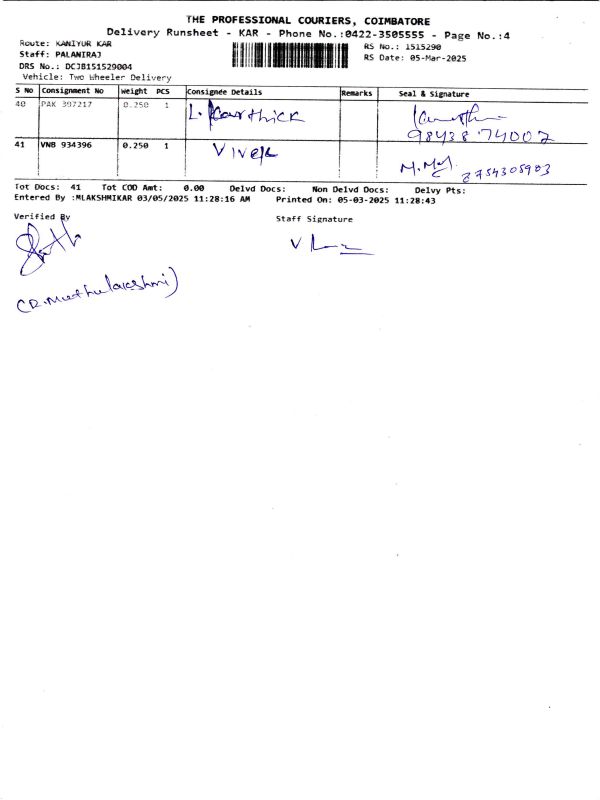 THE PROFESSIONAL COURIERS, COIMBATORE
Delivery Runsheet - KAR - Phone No.:0422-3505555 - Page No.:4
Route: KANIYUR KAR
RS No.: 1515290
Staff: PALANIRAJ
RS Date: 05-Mar-2025
DRS No.: DCJB151529004
Vehicle: Two Wheeler Delivery
S No Consignment No Weight PCS Consignee Details Remarks Seal & Signature
40 PAK 397217 0.250 1 L. Karthick
98438 74002
41 VNB 934396 0.250 1 Vivek
8754305903
Tot Docs: 41 Tot COD Amt: 0.00 Delvd Docs: Non Delvd Docs: Delvy Pts:
Entered By :MLAKSHMIKAR 03/05/2025 11:28:16 AM Printed On: 05-03-2025 11:28:43
Verified By Staff Signature
(R. Muthulakshmi)